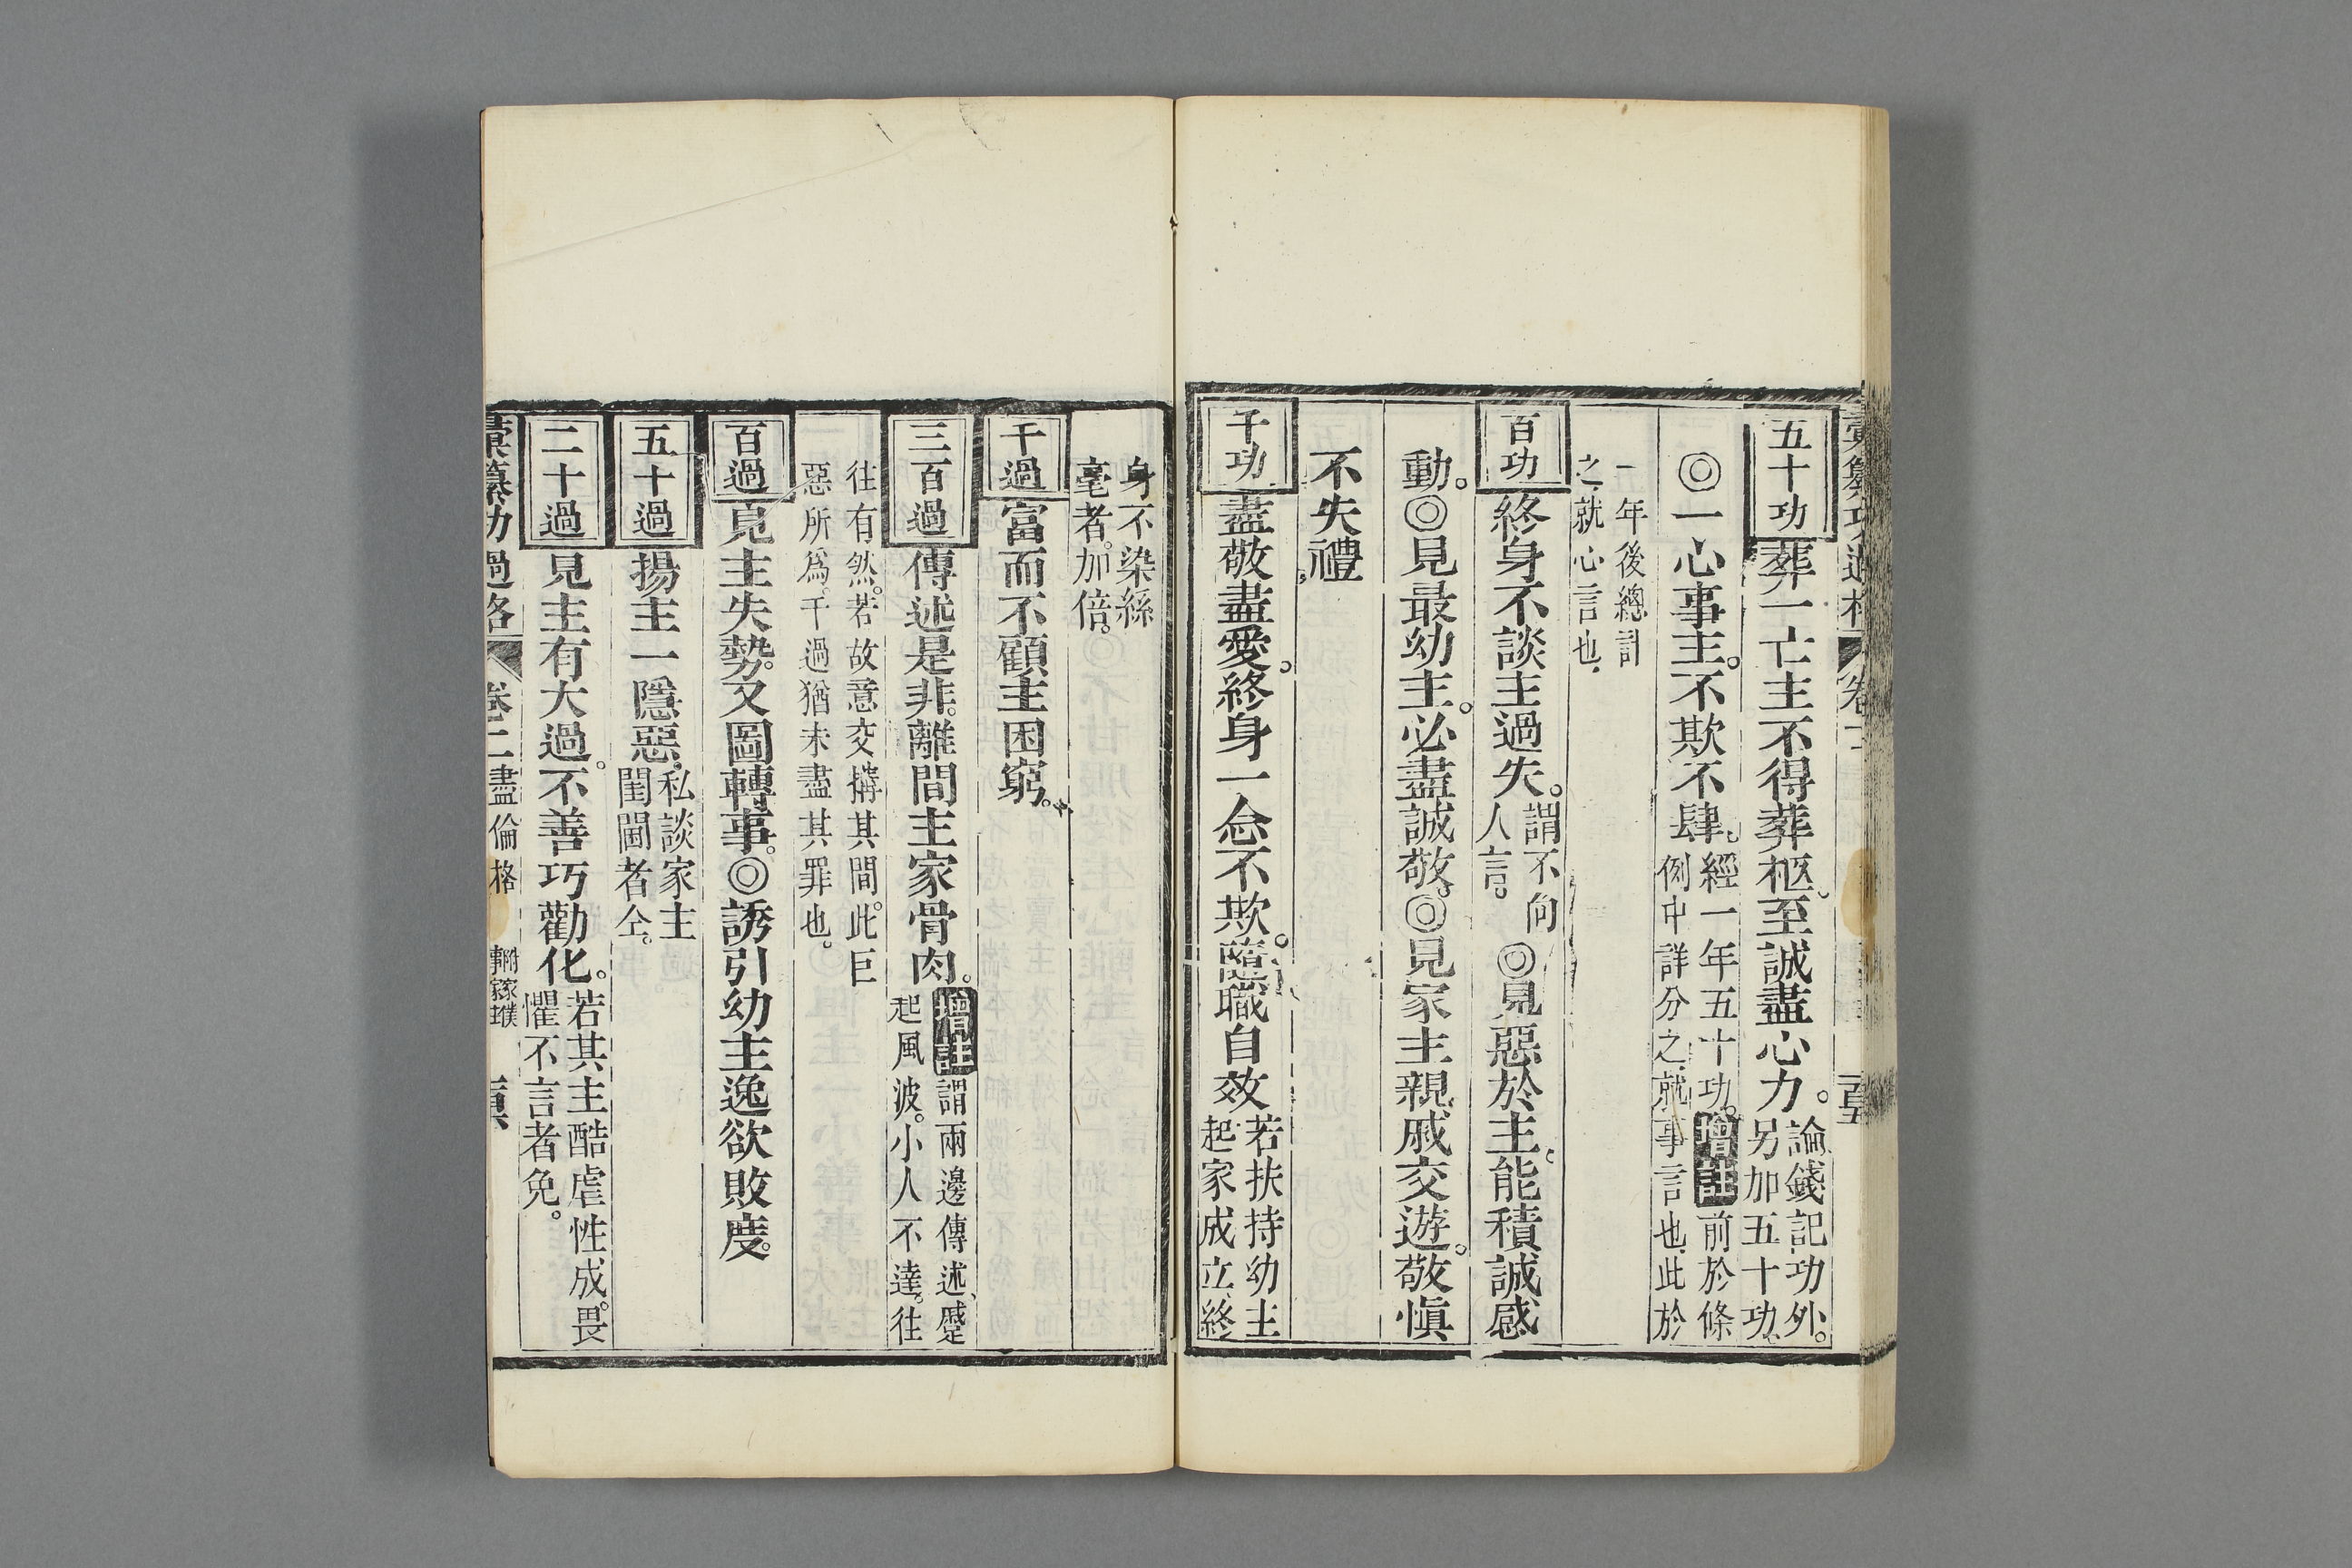 五十功葬一亡主不得葬柩。至誠盡心力。論錢記功外。另加五十功、
◎一心事主。不欺不肆。經一年五十功。增註前於條例中詳分之、就事言也、此於
一年後總記之、就心言也、
百功終身不談主過失。謂不向人言。◎見惡於主。能積誠感
動。◎見最幼主。必盡誠敬。◎見家主親戚交遊。敬愼
不失禮。
千功盡敬盡愛。終身一念不欺。隨職自效若扶持幼主起家成立、終
身不染絲毫者。加倍。
千過富而不顧主困窮。
三百過傳述是非。離間主家骨肉。增註謂兩邊傳述、蹙起風波。小人不達。往
往有然。若故意交搆其間。此巨惡所爲。千過猶未盡其罪也。
百過見主失勢。又圖轉事。◎誘引幼主逸欲敗度。
五十過揚主一隱惡。私談家主閨閫者仝。
二十過見主有大過。不善巧勸化。若其主酷虐性成。畏懼不言者免。
彙纂功過格 卷二 盡倫格 附家僕事家主